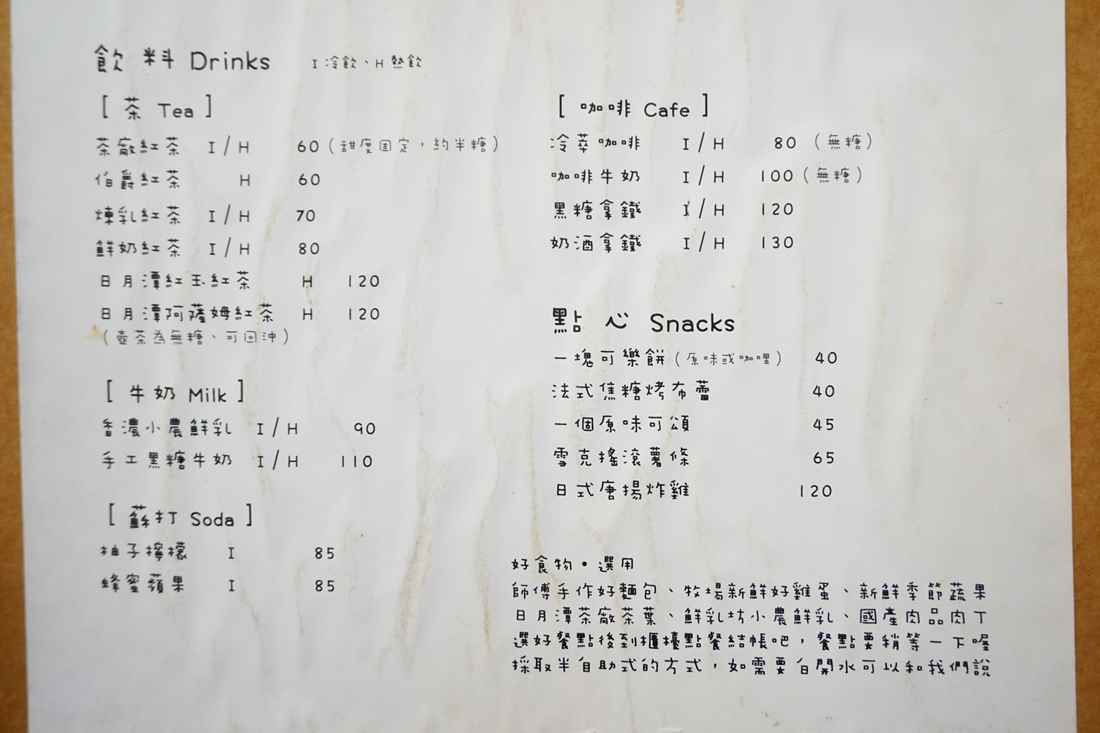 飲料 Drinks　I 冷飲、H 熱飲
[ 茶 Tea ]
茶廠紅茶 I / H 60 (甜度固定，約半糖)
伯爵紅茶 H 60
煉乳紅茶 I / H 70
鮮奶紅茶 I / H 80
日月潭紅玉紅茶 H 120
日月潭阿薩姆紅茶 H 120
(壺茶為無糖、可回沖)
[ 牛奶 Milk ]
香濃小農鮮乳 I / H 90
手工黑糖牛奶 I / H 110
[ 蘇打 Soda ]
柚子檸檬 I 85
蜂蜜蘋果 I 85
[ 咖啡 Cafe ]
冷萃咖啡 I / H 80 (無糖)
咖啡牛奶 I / H 100 (無糖)
黑糖拿鐵 I / H 120
奶酒拿鐵 I / H 130
點心 Snacks
一塊可樂餅 (原味或咖哩) 40
法式焦糖烤布蕾 40
一個原味可頌 45
雪克搖滾薯條 65
日式唐揚炸雞 120
好食物・選用
師傅手作好麵包、牧場新鮮好雞蛋、新鮮季節蔬果
日月潭茶廠茶葉、鮮乳坊小農鮮乳、國產肉品肉丁
選好餐點後到櫃檯點餐結帳吧，餐點要稍等一下喔
採取半自助式的方式，如需要白開水可以和我們說